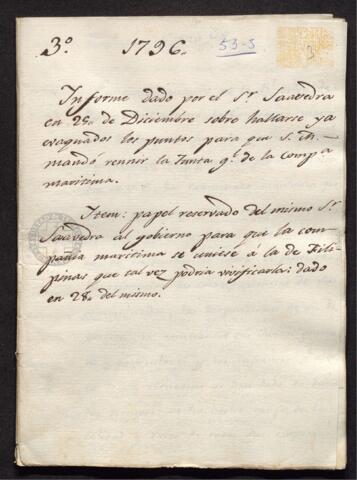 3.º 1796.
53-5
3
Informe dado por el S.r Saavedra
en 28. de Diciembre sobre hallarse ya
evaquados los puntos para que S. M.
mandó reunir la Junta g.l de la Comp.a
maritima.
Item: papel reservado del mismo S.r
Saavedra al gobierno para que la com-
pañia maritima se uniese á la de Fili-
pinas que tal vez podria vivificarla: dado
en 28. del mismo.